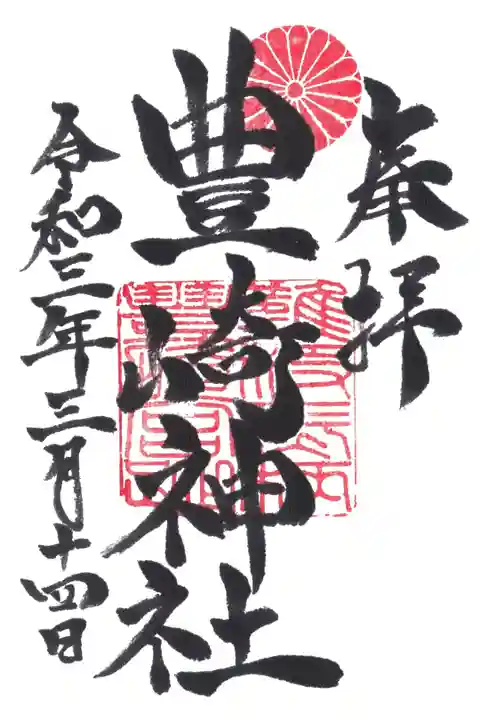 奉拝
豊崎神社
令和三年三月十四日